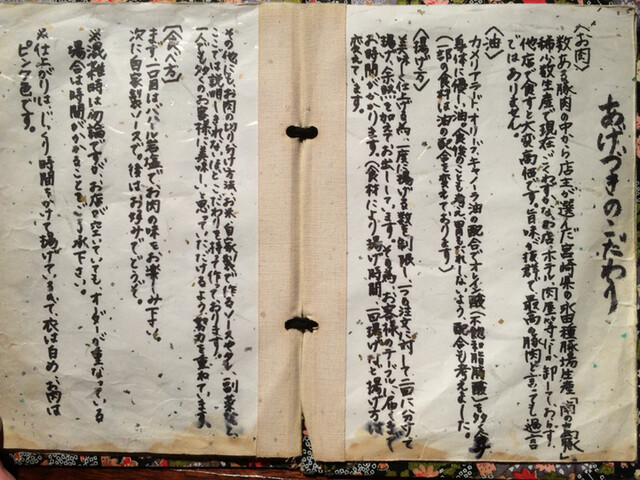 あげづきのこだわり
〈お肉〉
数ある豚肉の中から店主が選んだ宮崎県の水田種豚場生産「南の島豚」
稀少数生産で現在、ごくわずかなお店、ホテル、肉屋等にしか卸しておらず、
他店で食すと大変高価です。旨味が抜群で最高の豚肉と言っても過言
ではありません。
〈油〉
カメリアラード、オリーブ、キャノーラ油の配合でオレイン酸(不飽和脂肪酸)を多く含み
身体に優しい油(食後のことも考え胃もたれしないよう、配合も考えました。
(一部の食材は油の配合を変えております)
〈揚げ方〉
美味しく仕上げる為、一度に揚げる数を制限し、一つの注文に対して二回に分けて
揚げ、余熱を加えてお出しして、ます。その為、お客様のテーブルに届くまで
お時間がかかります。(食材により揚げ時間、二回揚げなど揚げ方は
変えています。
その他にもお肉の切り分け方法、お米、自家製で作るソースやタレ、副菜など、
ここでは説明しきれないほどこだわりを持って作っております。
一人でも多くのお客様に「美味しい」と思っていただけるよう努力を重ねています。
〈食べ方〉
まず、一口目はパハール岩塩でお肉の味をお楽しみ下さい。
次に自家製ソースで。後はお好みでどうぞ。
※混雑時は勿論ですが、お店が空いていても、オーダーが重なっている
場合は時間がかかることをご了承下さい。
※仕上がりはじっくり時間をかけて揚げているので、衣は白め、お肉は
ピンク色です。